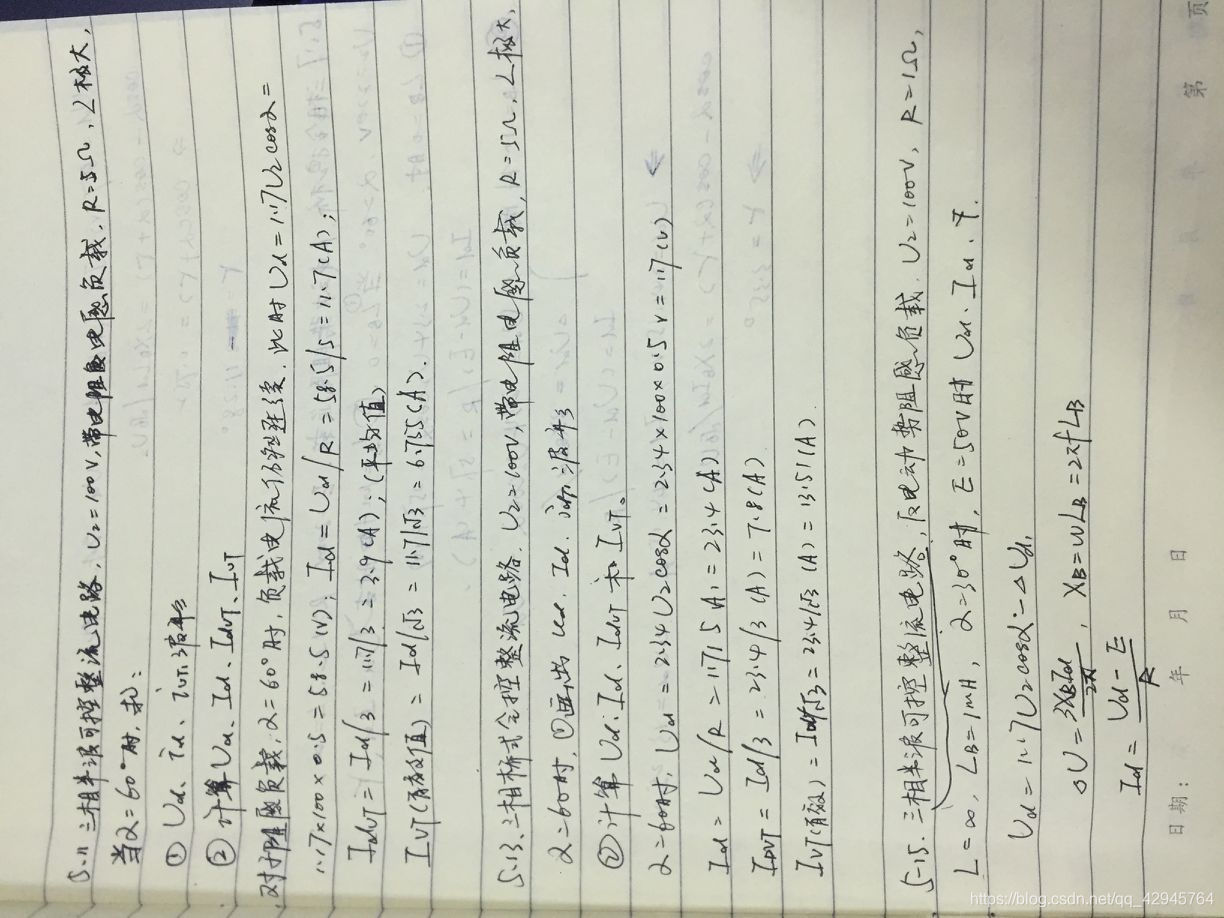 5-11 三相半波可控整流电路, U₂=100V, 带电阻电感负载, R=5Ω, L极大,
当α=60°时, 求:
① Ud、id、iVT₁波形
② 计算Ud、Id、IdVT、IVT
对于阻感负载, α=60°时, 负载电流仍能连续, 此时Ud=1.17U₂cosα=
1.17×100×0.5=58.5(V); Id=Ud/R=58.5/5=11.7(A);
IdVT=Id/3=11.7/3=3.9(A); (平均值)
IVT(有效值)=Id/√3=11.7/√3=6.755(A).
5-13. 三相桥式全控整流电路, U₂=100V, 带电阻电感负载, R=5Ω, L极大,
α=60时, ①画出ud、Id、波形
②计算Ud、Id、IdVT和IVT。
α=60时, Ud=2.34U₂cosα=2.34×100×0.5V=117(V)
Id=Ud/R=117/5(A)=23.4(A)
IDVT=Id/3=23.4/3(A)=7.8(A)
IVT(有效)=Id/√3=23.4/√3(A)=13.51(A)
5-15. 三相半波可控整流电路, 反电动势阻感负载. U₂=100V, R=1Ω,
L=∞, LB=1mH, α=30°时, E=50V时 Ud、Id、γ.
Ud=1.17U₂cosα-△Ud,
△U=3XBId/2π, XB=WLB=2πfLB
Id=Ud-E/R
日期: 年 月 日
第 页
https://blog.csdn.net/qq_42945764